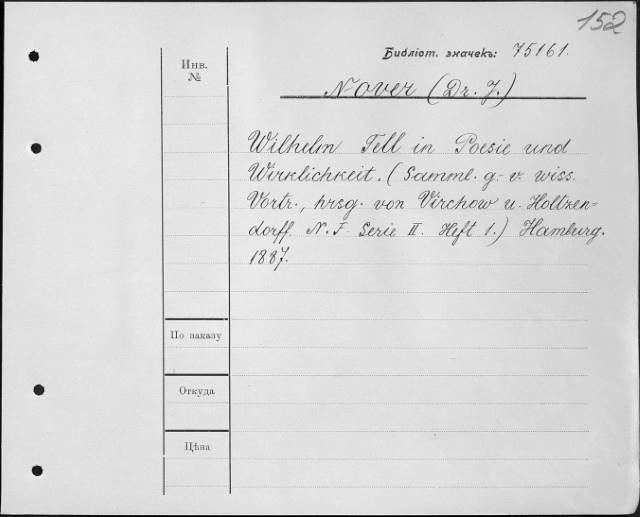 152
Библіот. значекъ: 75161.
Инв.
№
Nover (Dr. J.)
Wilhelm Tell in Poesie und
Wirklichkeit. (Samml. g.-v. wiss.
Vortr., hrsg. von Virchow u. Holtzen-
dorff. N. F. Serie II. Heft 1.) Hamburg.
1887.
По заказу
Откуда
Цѣна